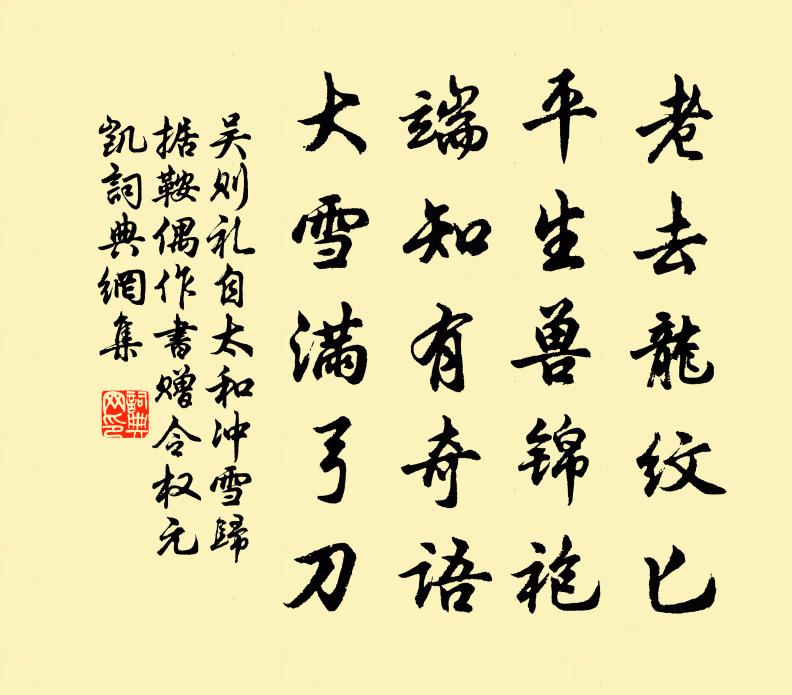 老去龍纹匕
平生兽锦袍
端知有奇语
大雪满弓刀
吴则礼自太和冲雪歸
据鞍偶作書赠令权元
凯詞典網集
詞典
网印